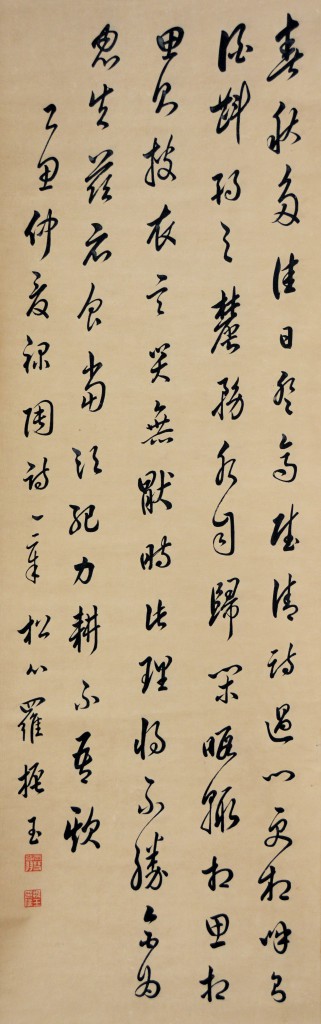 春秋多佳日登高賦清詩過門更相呼有
酒斟酌之農務各自歸閒暇輒相思相
思則披衣言笑無猒時此理將不勝無為
忽去茲衣食當須紀力耕不吾欺
仲夏陶詩一章松羅振玉